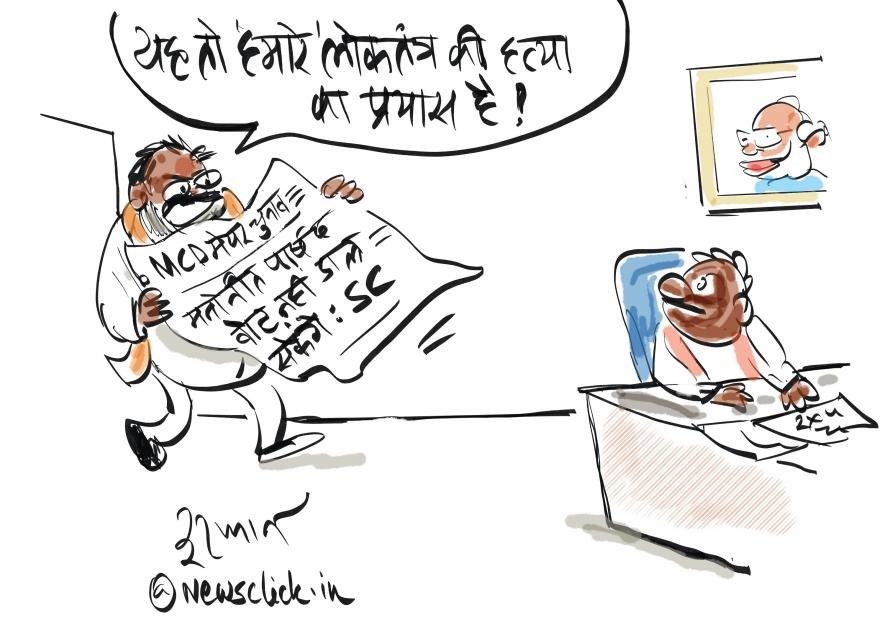 यह तो 'हमारे' लोकतंत्र की हत्या
का प्रयास है!
MCD मेयर चुनाव
मनोनीत पार्षद
वोट नहीं डाल
सकेंगे: SC
इरफान
@newsclick.in